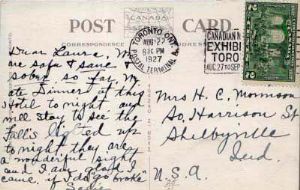 POST CARD
CORRESPONDENCE
CANADA
TORONTO, ONT.
AUG 27
8 30 PM
1927
POSTAL TERMINAL
CANADIAN N
EXHIBI
TORO
AUG. 27 TO SEP
2 2
Dear Laura, We
are safe & sane
sober so far. We
ate Dinner at this
Hotel to night and
will stay to see the
Falls lighted up
to night they are
a wonderful sight
and I am glad I
came, if I do "go broke"
Mrs H. C. Morrison
So, Harrison St
Shelbyville
Ind.
U.S.A.